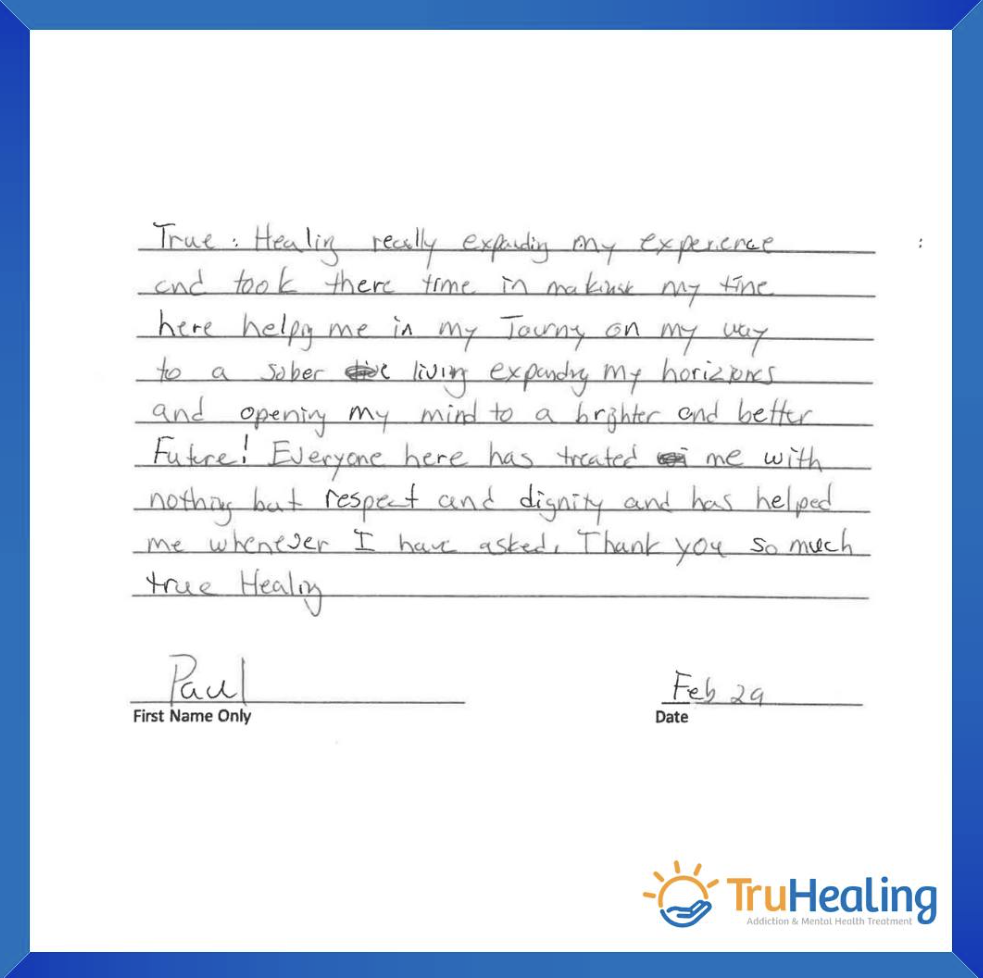 True : Healing really expanding my experience
and took there time in making my time
here helpg me in my Journy on my way
to a sober living expanding my horizones
and opening my mind to a brighter and better
Future! Everyone here has treated me with
nothing but respect and dignity and has helped
me whenever I have asked. Thank you so much
true Healing
Paul
Feb 29
First Name Only
Date
TruHealing
Addiction & Mental Health Treatment